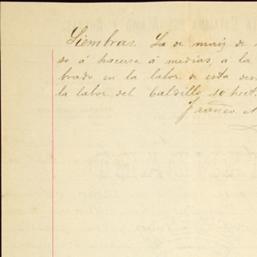 Siembras. La de maiz de
so á hacerse á medias, á la
brado en la labor de esta
la labor del Caldillo 10 hect
Franco